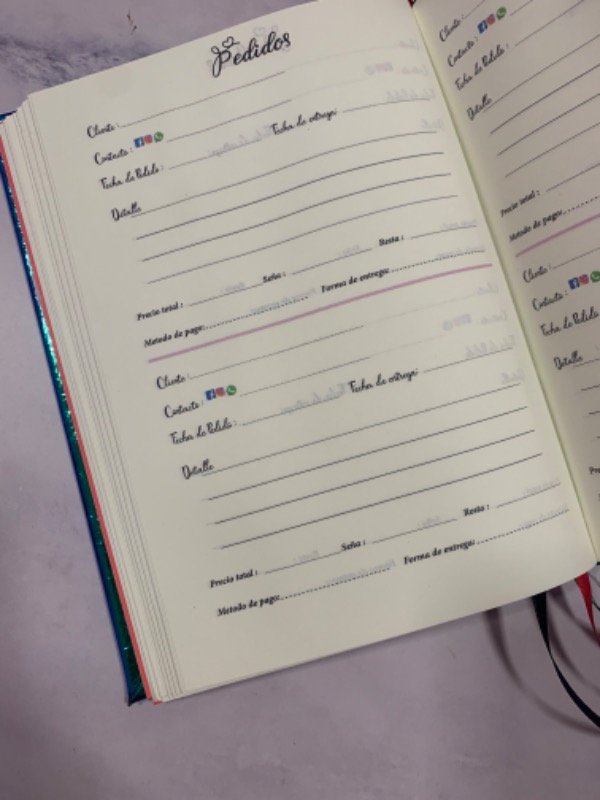 Pedidos
Cliente :
Contacto :
Fecha de Pedido : Fecha de entrega:
Detalle
Precio total : Seña : Resta :
Metodo de pago: Forma de entrega:
Cliente :
Contacto :
Fecha de Pedido : Fecha de entrega:
Detalle
Precio total : Seña : Resta :
Metodo de pago: Forma de entrega:
Cliente :
Contacto :
Fecha de Pedido :
Detalle
Precio total :
Metodo de pago:
Cliente :
Contacto :
Fecha de Pedido
Detalle